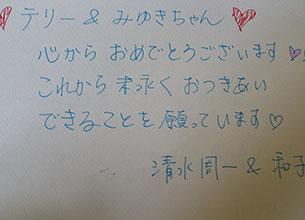 ♡ テリー & みゆきちゃん ♡
心から おめでとうございます ♡
これから 末永く おつきあい
できることを 願っています♡
清水周一 & 和子